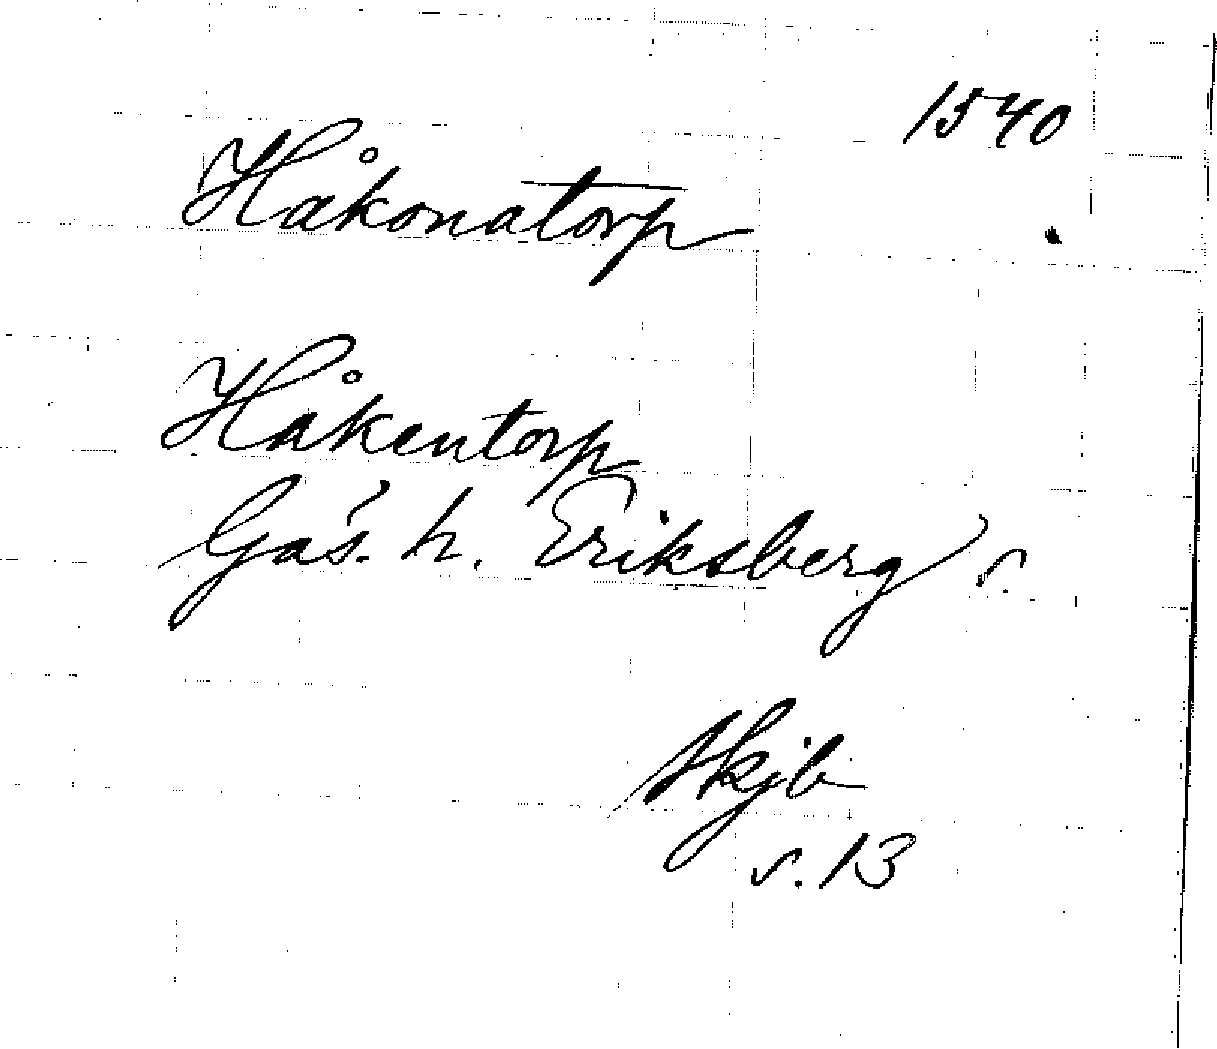 1540
Håkonatorp
Håkentorp
Gäs. h. Eriksberg s.
Skjb
s. 13